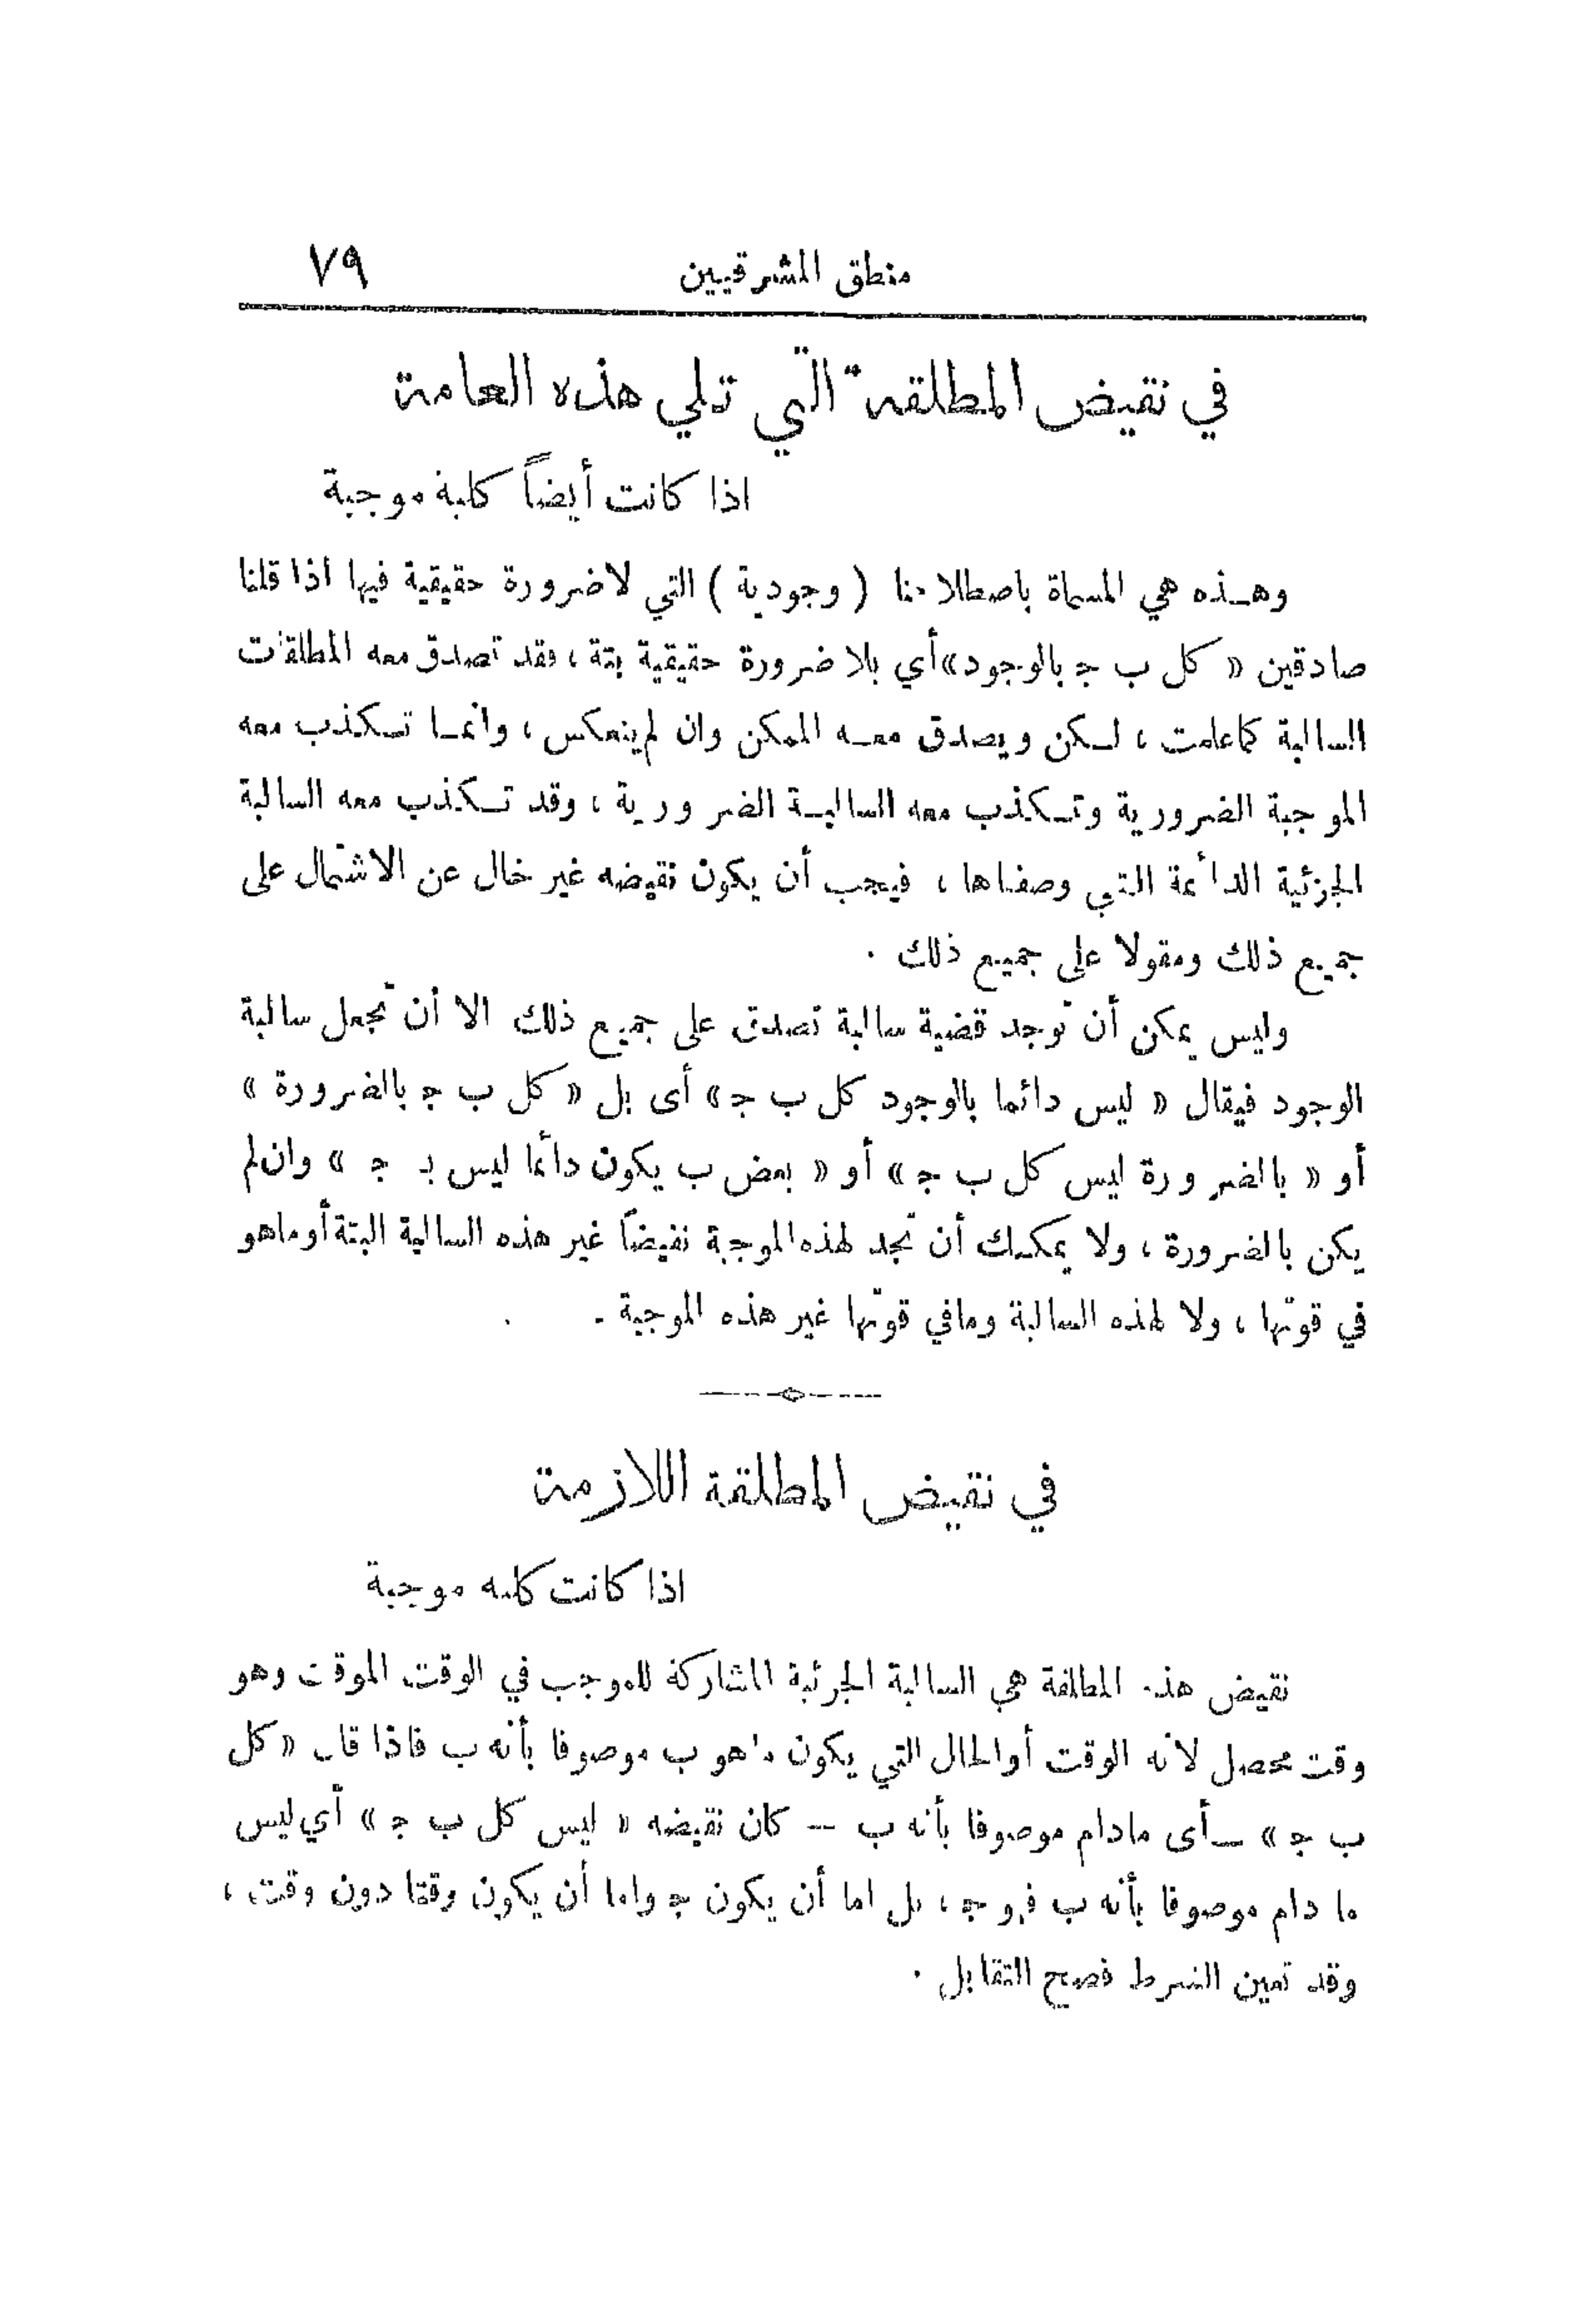 منطق المشرقيين ٧٩
في نقيض المطلقة التي تلي هذه العامة
اذا كانت أيضاً كلية موجبة
وهـذه هي المسماة باصطلاحنا ( وجودية ) التي لاضرورة حقيقية فيها اذا قلنا
صادقين « كل ب ج بالوجود» أي بلا ضرورة حقيقية بتة ، فقد تصدق معه المطلقات
السالبة كما علمت ، لـكن ويصدق معـه الممكن وان لم ينعكس ، وانمـا تـكذب معه
الموجبة الضرورية وتـكذب معه السالبـة الضرورية ، وقد تـكذب معه السالبة
الجزئية الدائمة التي وصفناها ، فيجب أن يكون نقيضه غير خال عن الاشتمال على
جميع ذلك ومقولا على جميع ذلك .
وليس يمكن أن توجد قضية سالبة تصدق على جميع ذلك الا أن تجعل سالبة
الوجود فيقال « ليس دائما بالوجود كل ب ج » أى بل « كل ب ج بالضرورة »
أو « بالضرورة ليس كل ب ج » أو « بعض ب يكون دائما ليس بـ ج » وان لم
يكن بالضرورة ، ولا يمكنك أن تجد لهذه الموجبة نقيضاً غير هذه السالبة البتة أو ماهو
في قوتها ، ولا لهذه السالبة ومافي قوتها غير هذه الموجبة .
في نقيض المطلقة اللازمة
اذا كانت كلية موجبة
نقيض هذه المطلقة هي السالبة الجزئية المشاركة للموجب في الوقت الموقت وهو
وقت محصل لانه الوقت أوالحال التي يكون ما هو ب موصوفا بأنه ب فاذا قال « كل
ب ج » ــ أى مادام موصوفا بأنه ب -- كان نقيضه « ليس كل ب ج » أي ليس
ما دام موصوفا بأنه ب فهو ج ، بل اما أن يكون ج واما أن يكون وقتا دون وقت ،
وقد تعين الشرط فصح التقابل .